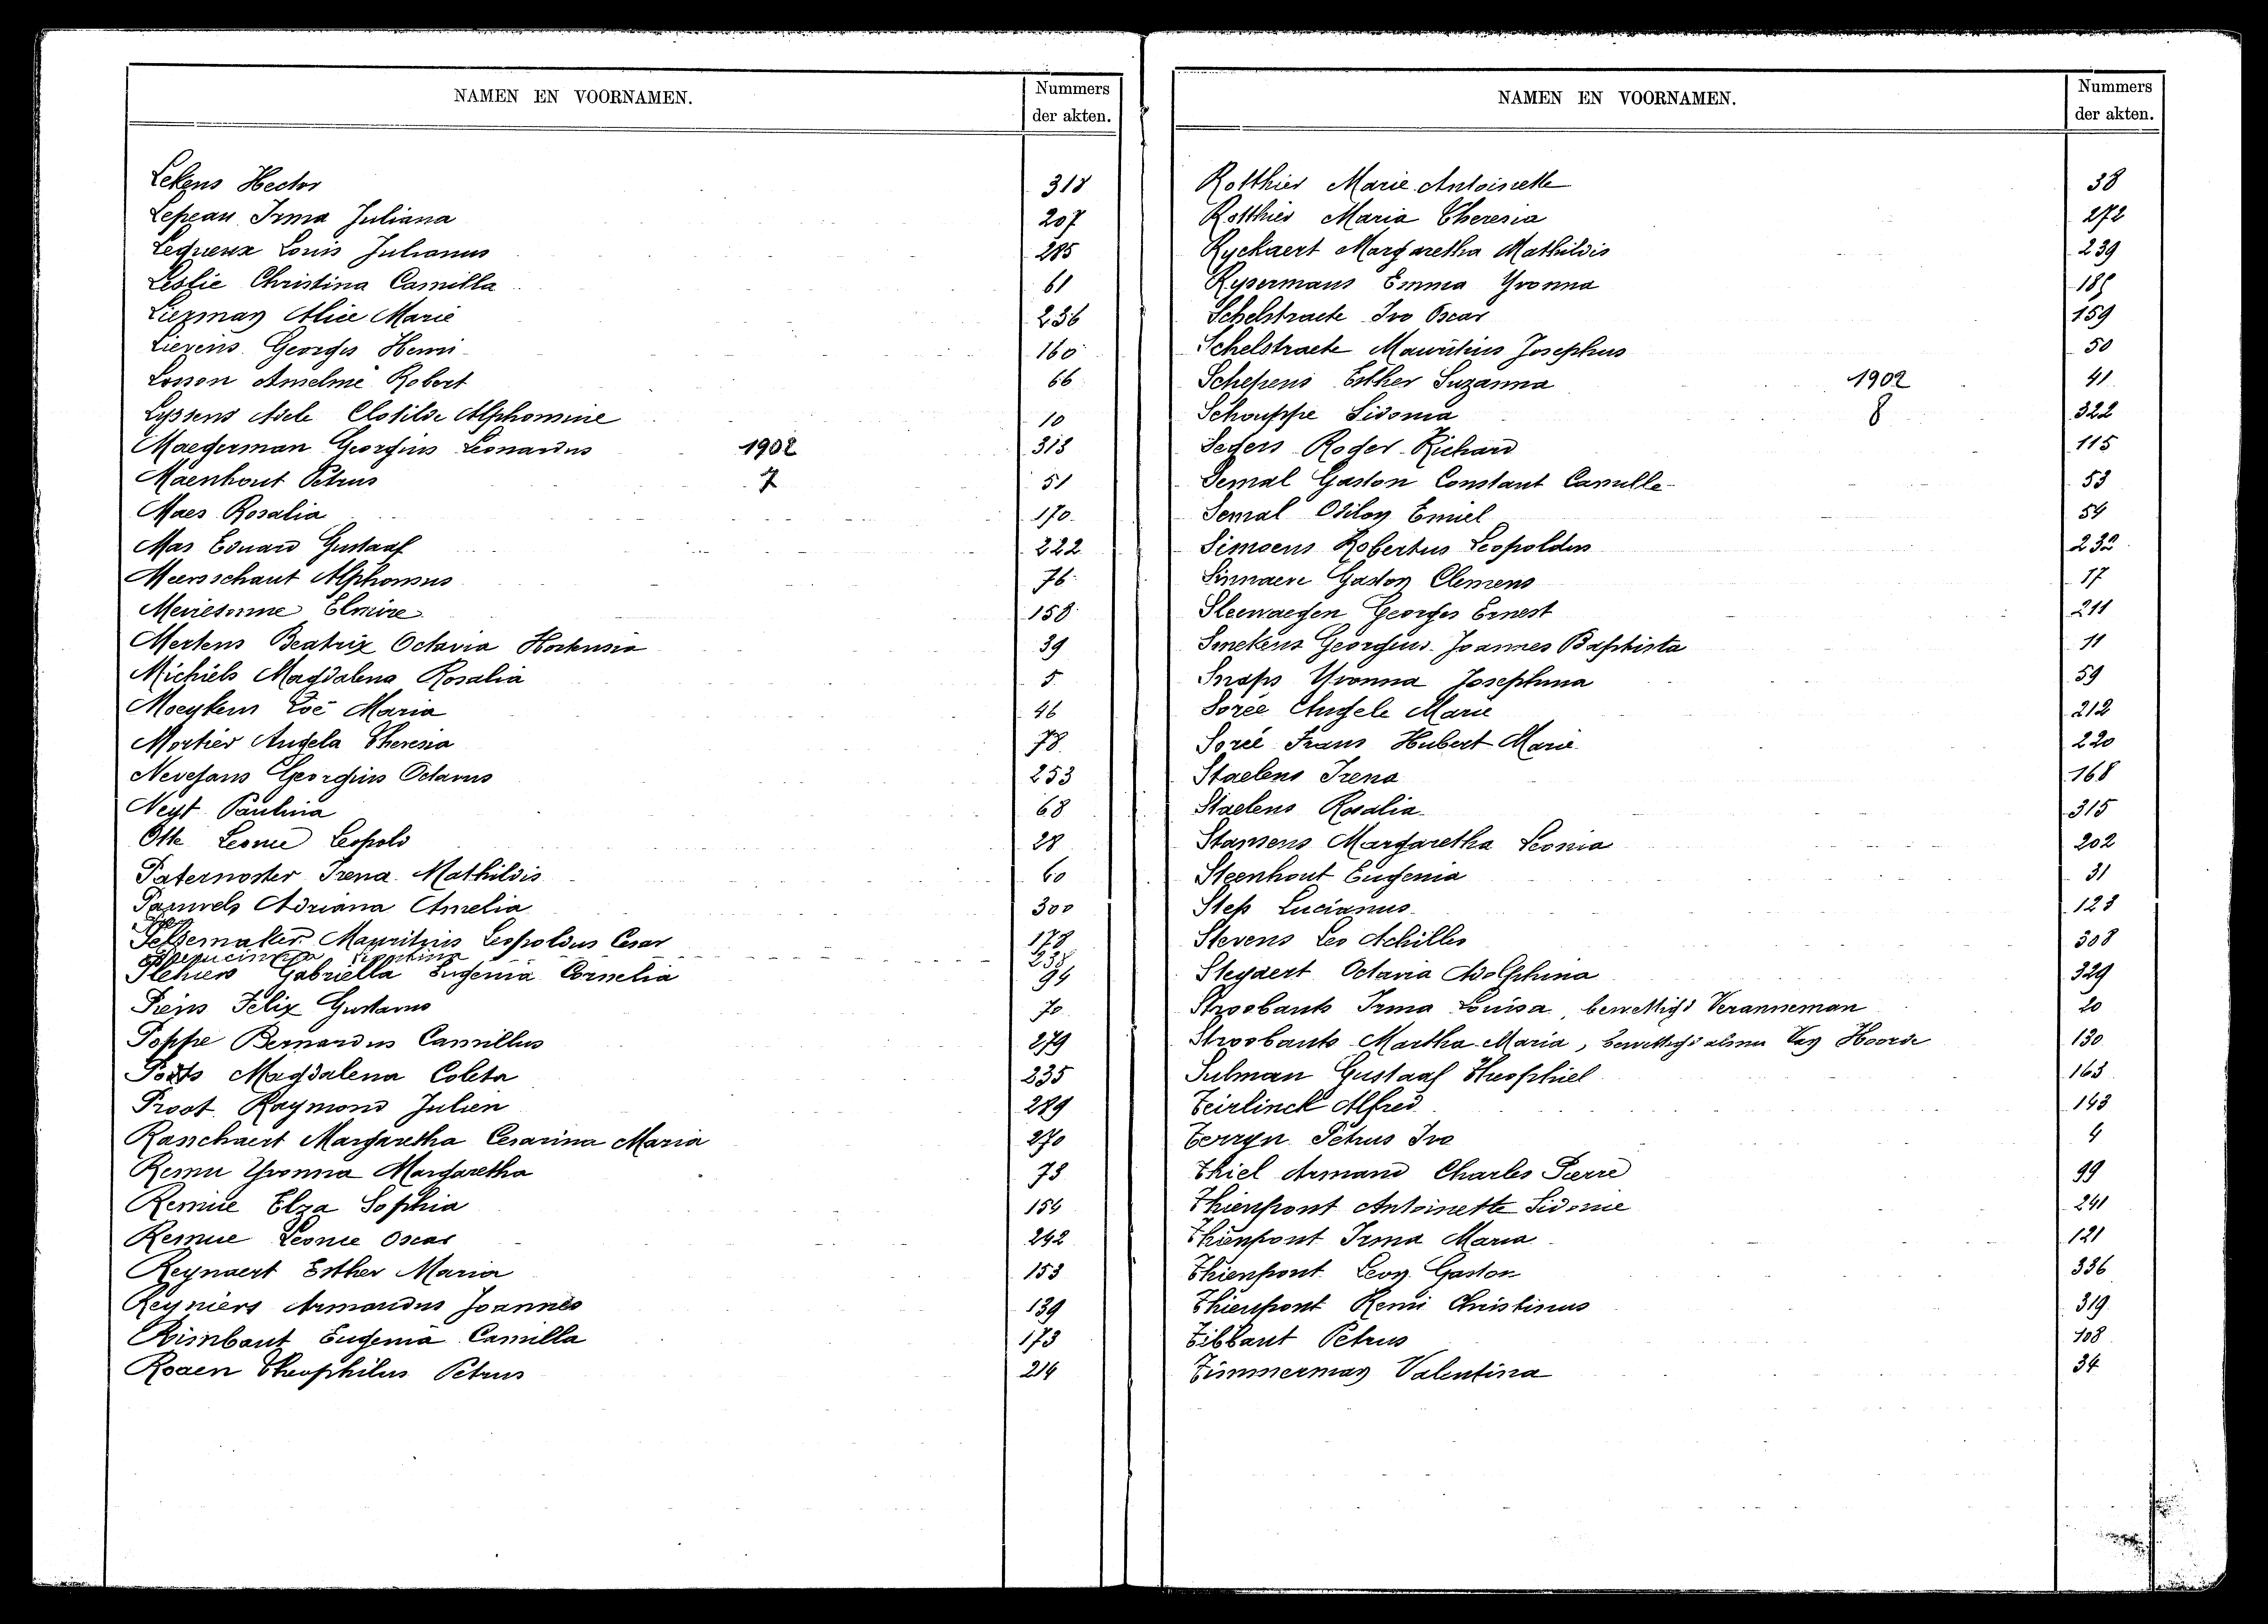 NAMEN EN VOORNAMEN. Nummers der akten.
Lekens Hector 318
Lepeau Irma Juliana 207
Lequeux Louis Julianus 285
Leslie Christina Camilla 61
Liezman Alice Marie 236
Lievens Georges Henri 160
Losson Anselme Robert 66
Lyssens Adele Clotilde Alphonsine 10
Maegerman Georgius Leonardus 1902 313
Maenhout Petrus 7 51
Maes Rosalia 170
Mas Eduard Gustaaf 222
Meersschaut Alphonsus 76
Meiresonne Elmire 158
Mertens Beatrix Octavia Hortensia 39
Michiels Magdalena Rosalia 5
Moeykens Zoë Maria 46
Mortier Angela Theresia 78
Nevejans Georgius Octavus 253
Neyt Paulina 68
Otte Leonie Leopold 28
Paternoster Irena Mathildis 60
Pauwels Adriana Amelia 300
Pelsemaker Mauritius Leopoldus Cesar 178
238
Plehiers Gabriella Eugenia Cornelia 94
Piens Felix Gustavus 70
Poppe Bernardus Camillus 279
Poots Magdalena Coleta 235
Proot Raymond Julien 289
Raschaert Margaretha Cesarina Maria 270
Remu Yvonna Margaretha 73
Remue Elza Sophia 154
Remue Leonce Oscar 242
Reynaert Esther Maria 153
Reyniers Armandus Joannes 139
Rimbaut Eugenia Camilla 173
Rogen Theophilus Petrus 214
NAMEN EN VOORNAMEN. Nummers der akten.
Rotthier Marie Antoinette 38
Rotthier Maria Theresia 272
Ryckaert Margaretha Mathildis 239
Rysermans Emma Yvonna 185
Schelstraete Ivo Oscar 159
Schelstraete Mauritius Josephus 50
Schepens Esther Suzanna 1902 41
Schouppe Sidonia 8 322
Segers Roger Richard 115
Semal Gaston Constant Camille 53
Semal Odilon Emiel 54
Simoens Robertus Leopoldus 232
Sinnaeve Gaston Clemens 17
Sleewaegen Georges Ernest 211
Smekens Georgius Joannes Baptista 11
Snaps Yvonna Josephina 59
Sorée Angele Marie 212
Sorée Frans Hubert Marie 220
Staelens Irena 168
Staelens Rosalia 315
Stampens Margaretha Leonia 202
Steenhout Eugenia 31
Steps Lucianus 123
Stevens Leo Achilles 308
Steyaert Octavia Adolphina 329
Stroobants Irma Louisa, bewettigd Veranneman 20
Stroobants Martha Maria, bewettigd alsnu Van Hoorde 130
Sulman Gustaaf Theophiel 163
Teirlinck Alfred 143
Terryn Petrus Ivo 4
Thiel Armand Charles Pierre 99
Thienpont Antoinette Sidonie 241
Thienpont Irma Maria 121
Thienpont Leon Gaston 336
Thienpont Remi Christinus 319
Tibbaut Petrus 108
Timmerman Valentina 34